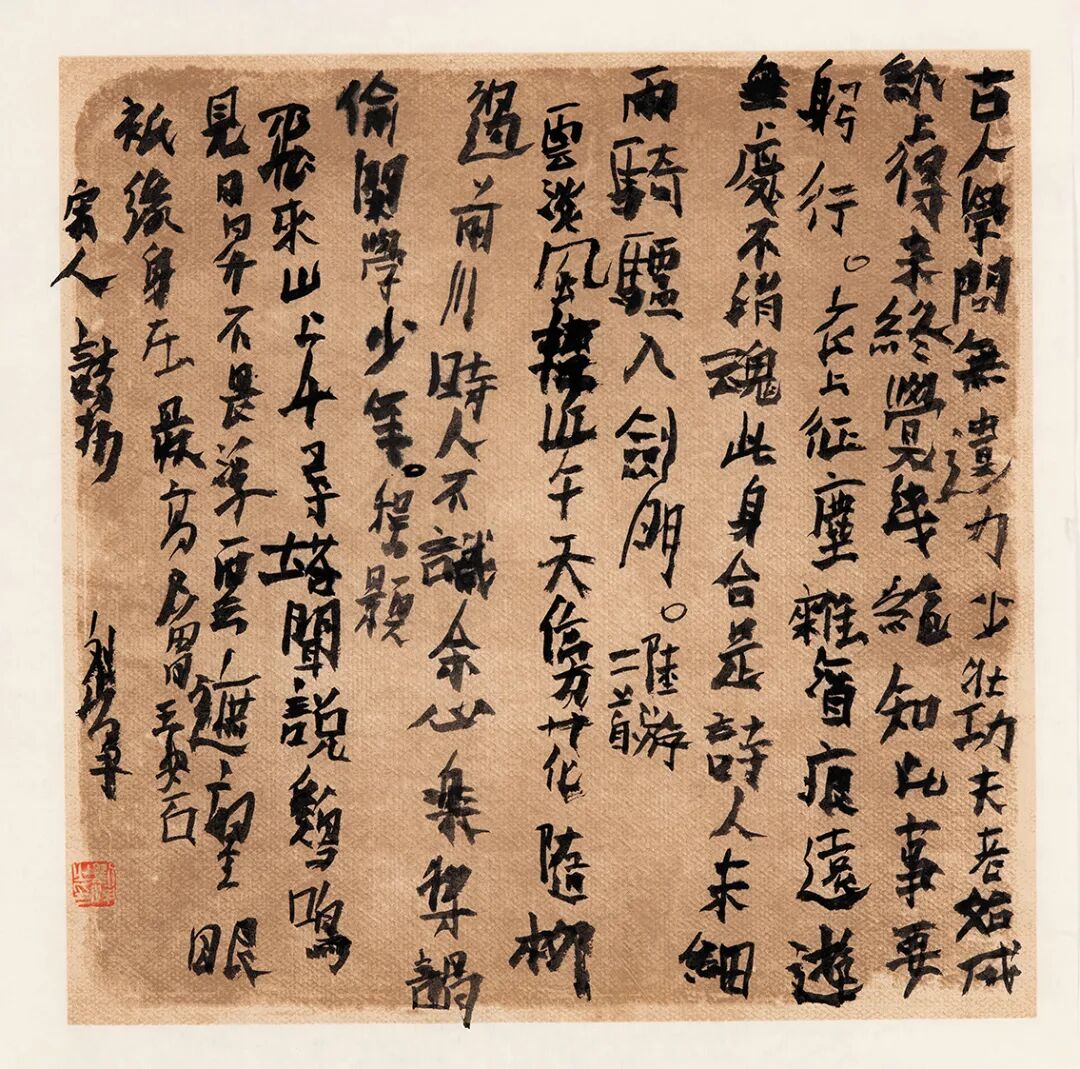 古人學問無遺力少壯功夫老始成
紙上得来終覺淺絶知此事要
躬行。衣上征塵雜酒痕遠遊
無處不銷魂此身合是詩人未細
雨騎驢入劍門。陸游二首
雲淡風輕近午天傍花隨柳
過前川時人不識余心樂將謂
偷閑學少年。程顥
飛來山上千尋塔聞說鷄鳴
見日昇不畏浮雲遮望眼
祇緣身在最高層王安石
宋人詩抄